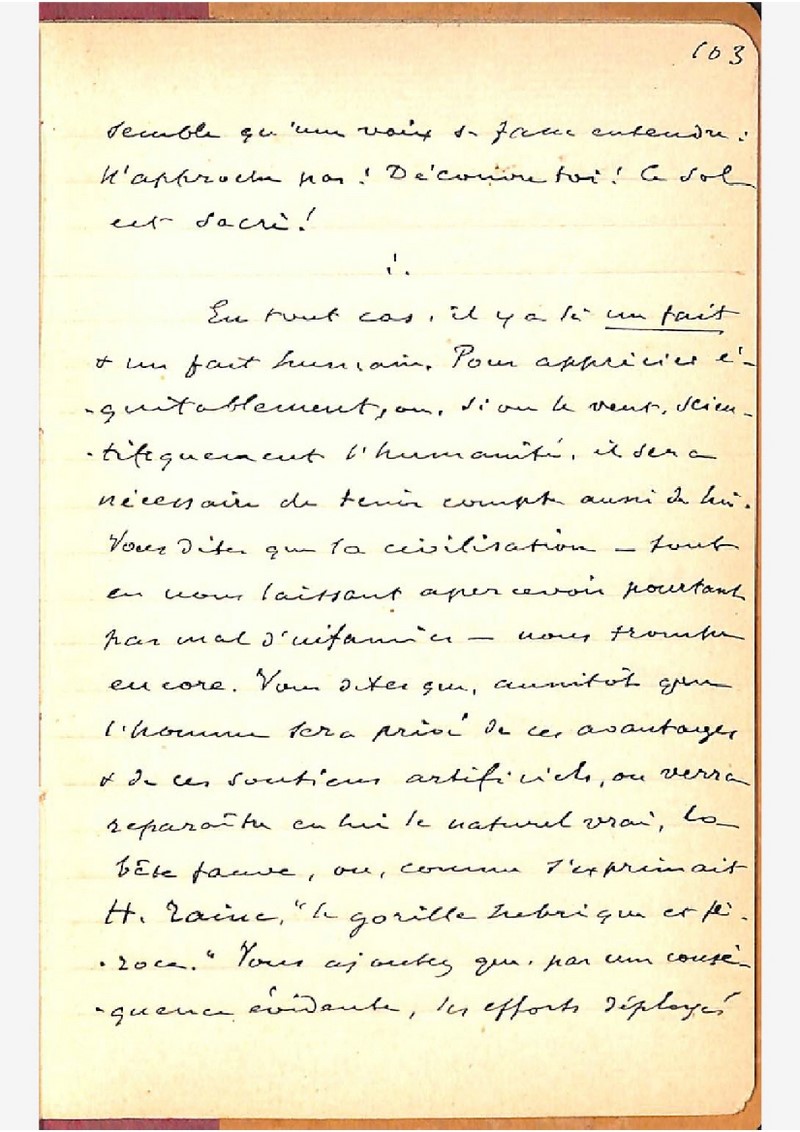 103
semble qu'une voix se fasse entendre :
N'approche pas ! Découvre toi ! Ce sol
est sacré !
En tout cas, il y a là un fait
& un fait humain. Pour apprécier é-
-quitablement, ou, si on le veut, scien-
-tifiquement l'humanité, il sera
nécessaire de tenir compte aussi de lui.
Vous dites que la civilisation – tout
en nous laissant apercevoir pourtant
pas mal d'infamies – nous trompe
encore. Vous dites que, aussitôt que
l'homme sera privé de ces avantages
& de ces soutiens artificiels, on verra
reparaître en lui le naturel vrai, la
bête fauve, ou, comme s'exprimait
H. Taine, "le gorille lubrique et fé-
-roce." Vous ajoutez que, par une consé-
-quence évidente, les efforts déployés